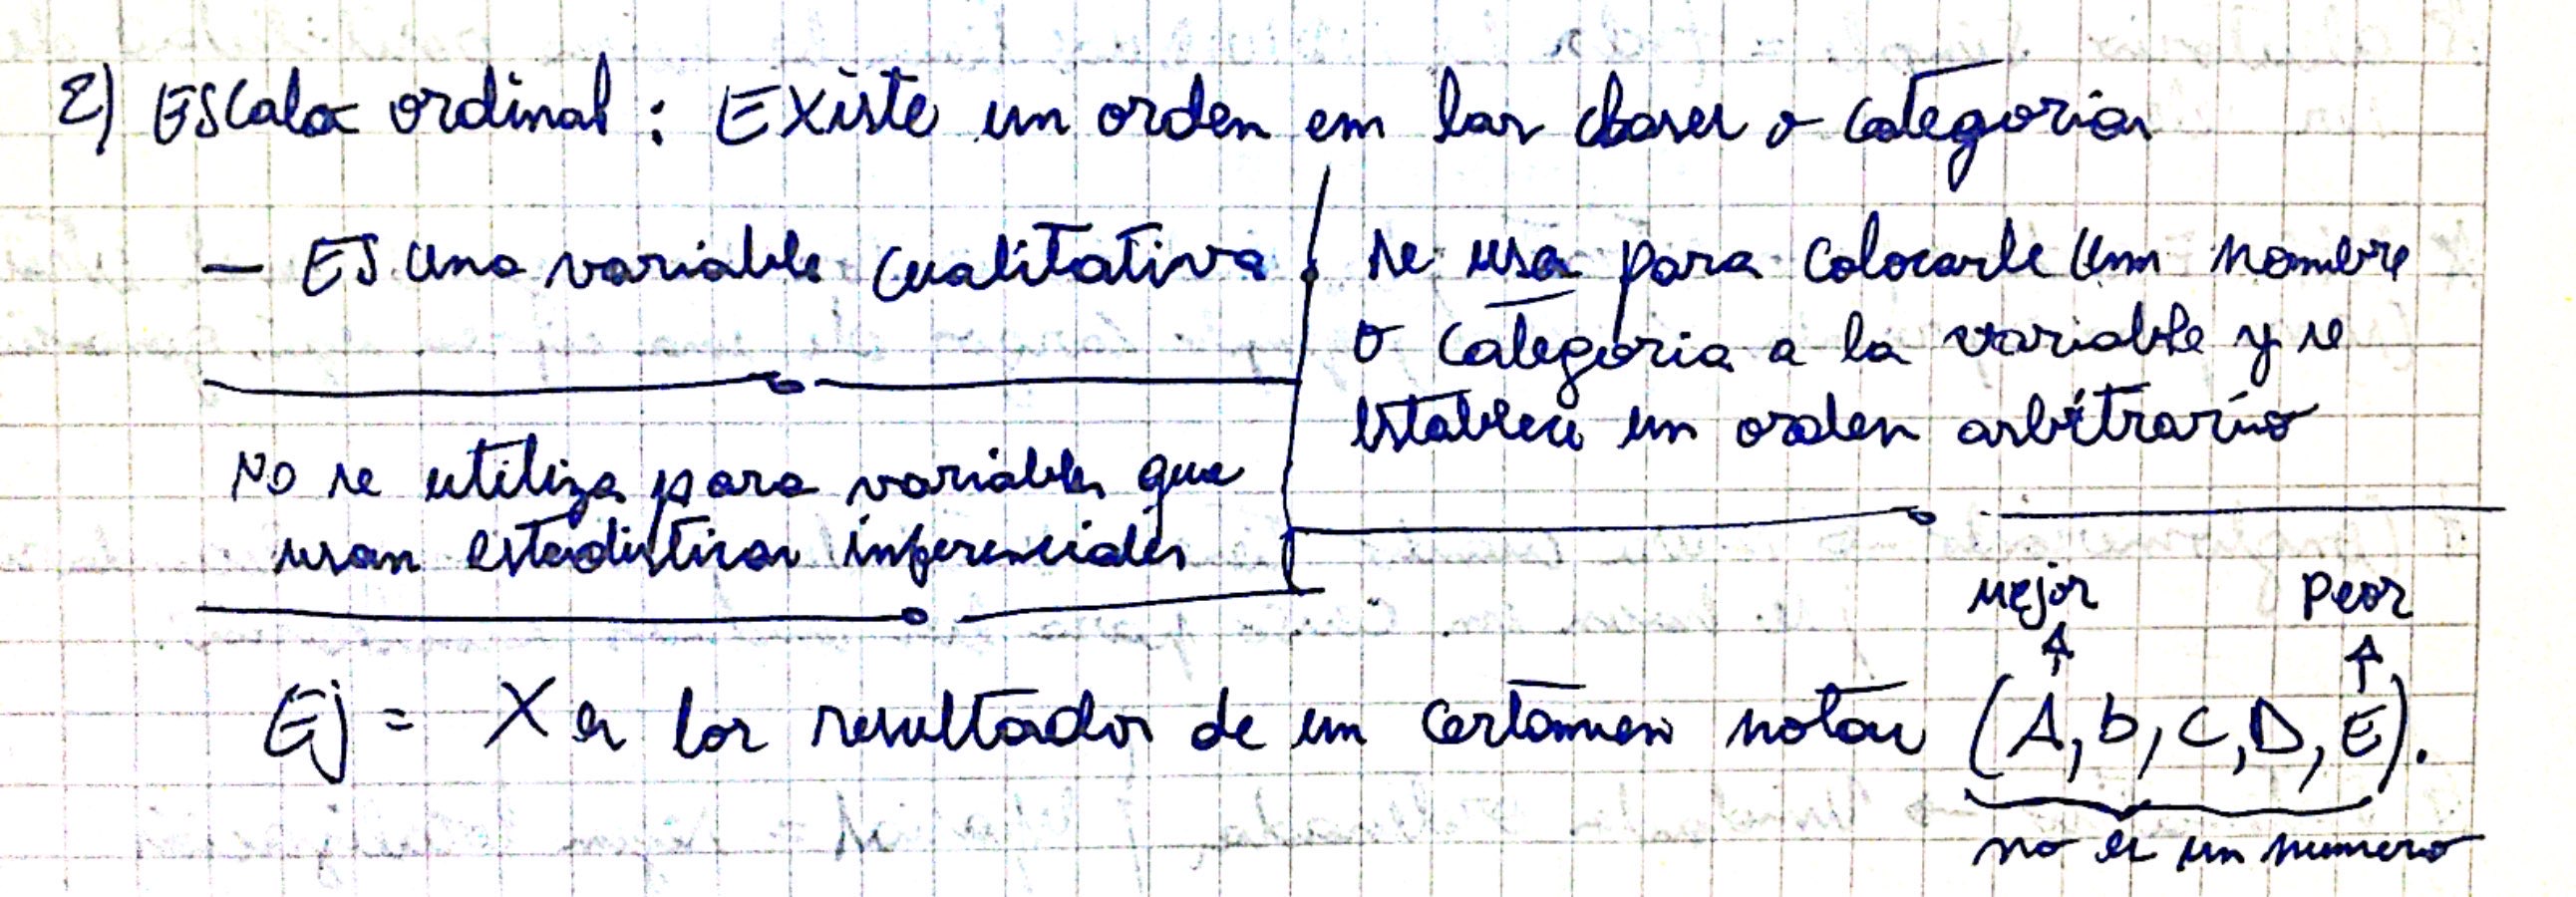 2) Escala ordinal: Existe un orden en las clases o categorias
- Es una variable cualitativa
No se utiliza para variables que
usan estadisticas inferenciales
se usa para colocarle un nombre
o categoria a la variable y se
establece un orden arbitrario
mejor peor
Ej = X es los resultados de un certamen notas (A, b, C, D, E).
no es un numero